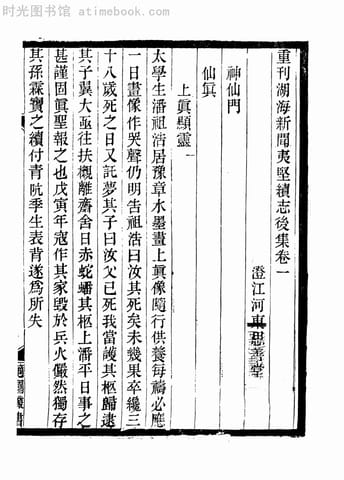 时光图书馆 - atimebook.com
重刊湖海新聞夷堅續志後集卷一
澄江河東思善堂
神仙門
仙眞
上眞顯靈一
太學生潘祖浩居豫章水墨畫上眞像隨行供養每禱必應
一日畫像作哭聲仍明告祖浩曰汝其死矣未幾果卒纔三
十八歲死之日又託夢其子曰汝父已死我當護其柩歸逮
其子翼大亟往扶櫬離齋舍日赤蛇蟠其柩上潘平日事之
甚謹固眞聖報之也戊寅年寇作其家毀於兵火儼然獨存
其孫霖寶之續付青吭季生表背遂爲所失